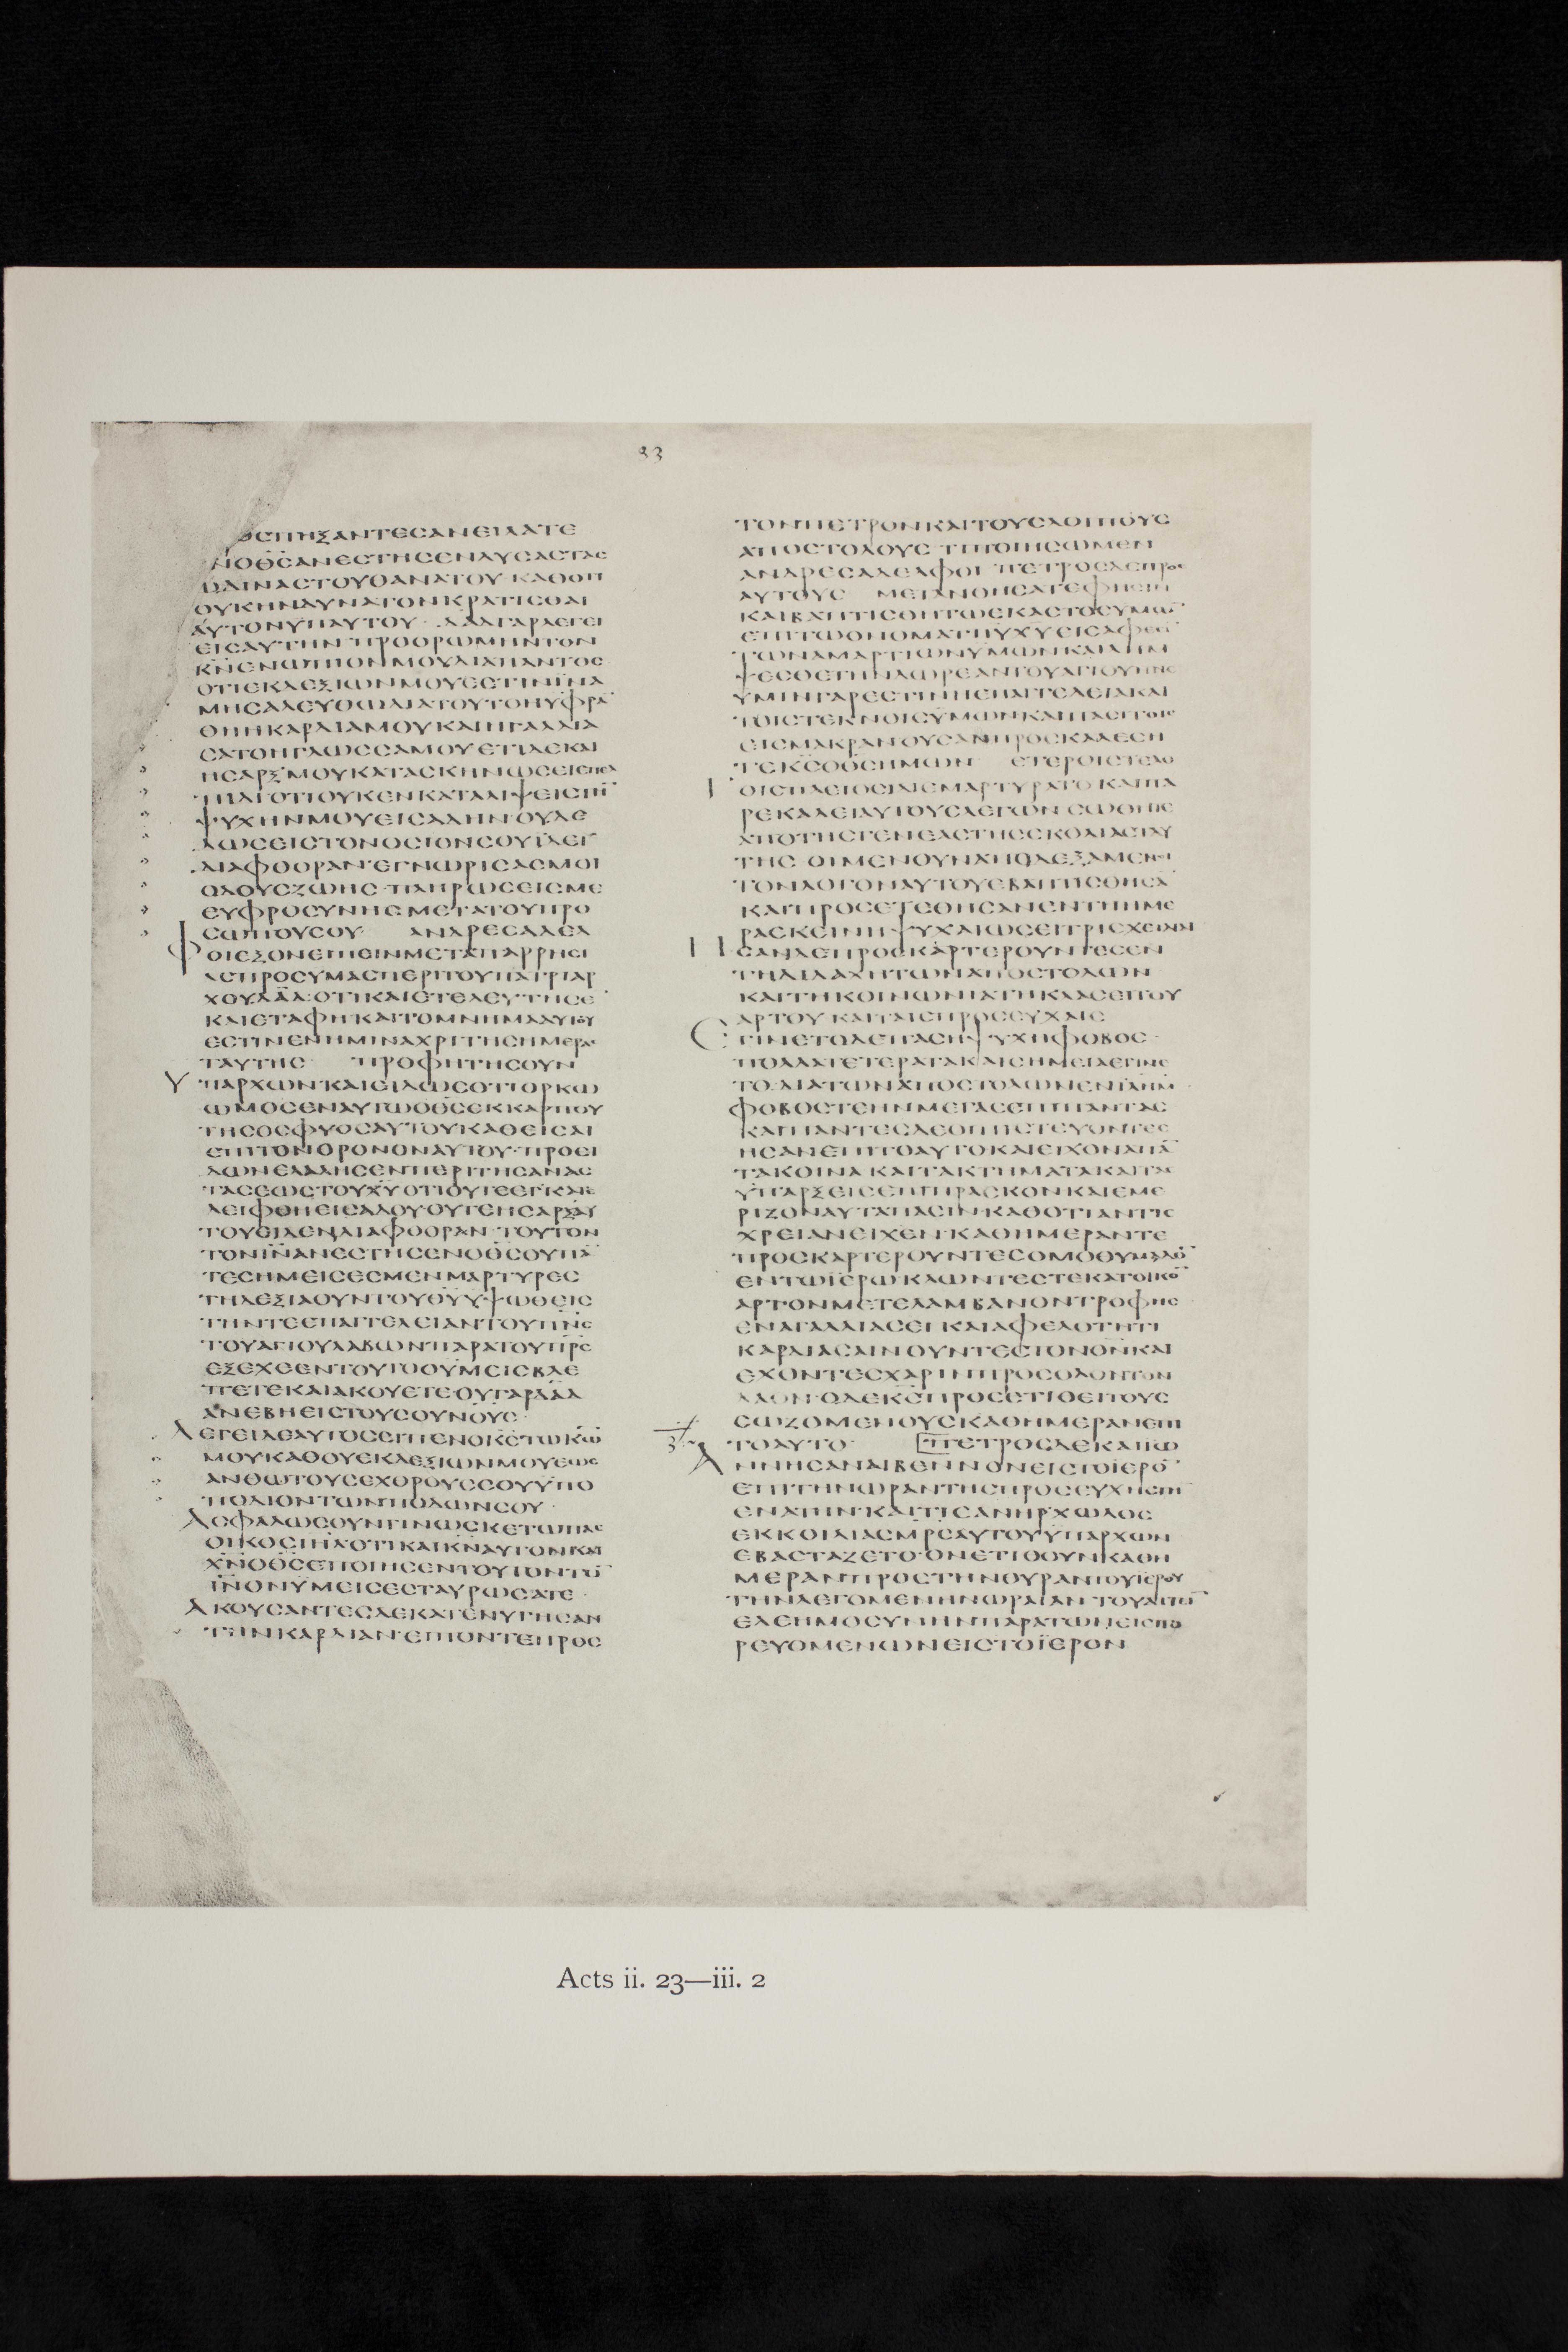 ΟϹΠΗΞΑΝΤΕϹΑΝΕΙΛΑΤΕ
ΝΟΘ̅Ϲ̅ΑΝΕϹΤΗϹΕΝΛΥϹΑϹΤΑϹ
ΩΔΙΝΑϹΤΟΥΘΑΝΑΤΟΥ· ΚΑΘΟΤΙ
ΟΥΚΗΝΔΥΝΑΤΟΝΚΡΑΤΙϹΘΑΙ
ΑΥΤΟΝΥΠΑΥΤΟΥ· ΔΑΔΓΑΡΛΕΓΕΙ
ΕΙϹΑΥΤΗΝ· ΠΡΟΟΡΩΜΗΝΤΟΝ
Κ̅Ν̅ΕΝΩΠΙΟΝΜΟΥΔΙΑΠΑΝΤΟϹ
ΟΤΙΕΚΔΕΞΙΩΝΜΟΥΕϹΤΙΝΪΝΑ
ΜΗϹΑΛΕΥΘΩΔΙΑΤΟΥΤΟΗΥΦΡΑ̅
ΘΗΗΚΑΡΔΙΑΜΟΥΚΑΙΗΓΑΛΛΙΑ
ϹΑΤΟΗΓΛΩϹϹΑΜΟΥΕΤΙΔΕΚΑΙ
ΗϹΑΡΞΜΟΥΚΑΤΑϹΚΗΝΩϹΕΙΕΠΕΛ
ΠΙΔΙΟΤΙΟΥΚΕΝΚΑΤΑΛΙΨΕΙϹΤΗ̅
ΨΥΧΗΝΜΟΥΕΙϹΑΔΗΝ·ΟΥΔΕ
ΔΩϹΕΙϹΤΟΝΟϹΙΟΝϹΟΥΪΔΕΙΝ
ΔΙΑΦΘΟΡΑΝ·ΕΓΝΩΡΙϹΑϹΜΟΙ
ΟΔΟΥϹΖΩΗϹ·ΠΛΗΡΩϹΕΙϹΜΕ
ΕΥΦΡΟϹΥΝΗϹΜΕΤΑΤΟΥΠΡΟ
ϹΩΠΟΥϹΟΥ· ΑΝΔΡΕϹΑΔΕΛ
ΦΟΙΕΞΟΝΕΙΠΕΙΝΜΕΤΑΠΑΡΡΗϹΙ
ΑϹΠΡΟϹΥΜΑϹΠΕΡΙΤΟΥΠΑΤΡΙΑΡ
ΧΟΥΔ̅Α̅Δ̅·ΟΤΙΚΑΙΕΤΕΛΕΥΤΗϹΕ̅
ΚΑΙΕΤΑΦΗΚΑΙΤΟΜΝΗΜΑΑΥΤΟΥ
ΕϹΤΙΝΕΝΗΜΙΝΑΧΡΙΤΗϹΗΜΕΡΑϹ
ΤΑΥΤΗϹ· ΠΡΟΦΗΤΗϹΟΥΝ
ΥΠΑΡΧΩΝΚΑΙΕΙΔΩϹΟΤΙΟΡΚΩ
ΩΜΟϹΕΝΑΥΤΩΟΘ̅Ϲ̅ΕΚΚΑΡΠΟΥ
ΤΗϹΟϹΦΥΟϹΑΥΤΟΥΚΑΘΕΙϹΑΙ
ΕΠΙΤΟΝΘΡΟΝΟΝΑΥΤΟΥ·ΠΡΟΕΙ
ΔΩΝΕΛΑΛΗϹΕΝΠΕΡΙΤΗϹΑΝΑϹ
ΤΑϹΕΩϹΤΟΥΧ̅Υ̅ΟΤΙΟΥΤΕΕΓΚΑΤΕ
ΛΕΙΦΘΗΕΙϹΑΔΟΥ·ΟΥΤΕΗϹΑΡΞΑΥ
ΤΟΥΕΙΔΕΝΔΙΑΦΘΟΡΑΝ·ΤΟΥΤΟΝ
ΤΟΝΙ̅Ν̅ΑΝΕϹΤΗϹΕΝΟΘ̅Ϲ̅ΟΥΠΑ̅
ΤΕϹΗΜΕΙϹΕϹΜΕΝΜΑΡΤΥΡΕϹ
ΤΗΔΕΞΙΑΟΥΝΤΟΥΘ̅Υ̅ΥΨΩΘΕΙϹ
ΤΗΝΤΕΕΠΑΓΓΕΛΕΙΑΝΤΟΥΠ̅Ν̅Ϲ̅
ΤΟΥΑΓΙΟΥΛΑΒΩΝΠΑΡΑΤΟΥΠ̅Ρ̅Ϲ̅
ΕΞΕΧΕΕΝΤΟΥΤΟΟΥΜΕΙϹΒΛΕ
ΠΕΤΕΚΑΙΑΚΟΥΕΤΕ·ΟΥΓΑΡΔ̅Α̅Δ̅
ΑΝΕΒΗΕΙϹΤΟΥϹΟΥΝΟΥϹ·
ΛΕΓΕΙΔΕΑΥΤΟϹΕΙΠΕΝΟΚ̅Ϲ̅ΤΩΚ̅Ω̅
ΜΟΥΚΑΘΟΥΕΚΔΕΞΙΩΝΜΟΥΕΩϹ
ΑΝΘΩΤΟΥϹΕΧΘΡΟΥϹϹΟΥΥΠΟ
ΠΟΔΙΟΝΤΩΝΠΟΔΩΝϹΟΥ·
ΑϹΦΑΛΩϹΟΥΝΓΙΝΩϹΚΕΤΩΠΑϹ
ΟΙΚΟϹΙ̅Η̅Λ̅ΟΤΙΚΑΙΚ̅Ν̅ΑΥΤΟΝΚΑΙ
Χ̅Ν̅ΟΘ̅Ϲ̅ΕΠΟΙΗϹΕΝΤΟΥΤΟΝΤΟ̅
Ι̅Ν̅ΟΝΥΜΕΙϹΕϹΤΑΥΡΩϹΑΤΕ·
ΑΚΟΥϹΑΝΤΕϹΔΕΚΑΤΕΝΥΓΗϹΑΝ
ΤΗΝΚΑΡΔΙΑΝ·ΕΙΠΟΝΤΕΠΡΟϹ
ΤΟΝΠΕΤΡΟΝΚΑΙΤΟΥϹΛΟΙΠΟΥϹ
ΑΠΟϹΤΟΛΟΥϹ·ΤΙΠΟΙΗϹΩΜΕΝ
ΑΝΔΡΕϹΑΔΕΛΦΟΙ· ΠΕΤΡΟϹΔΕΠΡΟϹ
ΑΥΤΟΥϹ ΜΕΤΑΝΟΗϹΑΤΕΦΗϹΙΝ
ΚΑΙΒΑΠΤΙϹΘΗΤΩΕΚΑϹΤΟϹΥΜΩ̅
ΕΠΙΤΩΟΝΟΜΑΤΙΙ̅Υ̅Χ̅Υ̅ΕΙϹΑΦΕϹΙ̅
ΤΩΝΑΜΑΡΤΙΩΝΥΜΩΝΚΑΙΛΗΜ
ΨΕϹΘΕΤΗΝΔΩΡΕΑΝΤΟΥΑΓΙΟΥΠ̅Ν̅Ϲ̅
ΥΜΙΝΓΑΡΕϹΤΙΝΗΕΠΑΓΓΕΛΕΙΑΚΑΙ
ΤΟΙϹΤΕΚΝΟΙϹΥΜΩΝΚΑΙΠΑϹΙΤΟΙϹ
ΕΙϹΜΑΚΡΑΝΟΥϹΑΝΠΡΟϹΚΑΛΕϹΗ
ΤΕΚ̅Ϲ̅ΟΘ̅Ϲ̅ΗΜΩΝ ΕΤΕΡΟΙϹΤΕΛΟ
ΓΟΙϹΠΛΕΙΟϹΙΔΙΕΜΑΡΤΥΡΑΤΟΚΑΙΠΑ
ΡΕΚΑΛΕΙΑΥΤΟΥϹΛΕΓΩΝϹΩΘΗΤΕ
ΑΠΟΤΗϹΓΕΝΕΑϹΤΗϹϹΚΟΛΙΑϹΤΑΥ
ΤΗϹ·ΟΙΜΕΝΟΥΝΑΠΟΔΕΞΑΜΕΝΟΙ
ΤΟΝΛΟΓΟΝΑΥΤΟΥΕΒΑΠΤΙϹΘΗϹΑ̅
ΚΑΙΠΡΟϹΕΤΕΘΗϹΑΝΕΝΤΗΗΜΕ
ΡΑΕΚΕΙΝΗΨΥΧΑΙΩϹΕΙΤΡΙϹΧΕΙΛΙΑΙ
ΗϹΑΝΔΕΠΡΟϹΚΑΡΤΕΡΟΥΝΤΕϹΕΝ
ΤΗΔΙΔΑΧΗΤΩΝΑΠΟϹΤΟΛΩΝ
ΚΑΙΤΗΚΟΙΝΩΝΙΑΤΗΚΛΑϹΕΙΤΟΥ
ΑΡΤΟΥ·ΚΑΙΤΑΙϹΠΡΟϹΕΥΧΑΙϹ
ΕΓΙΝΕΤΟΔΕΠΑϹΗΨΥΧΗΦΟΒΟϹ·
ΠΟΛΛΑΤΕΤΕΡΑΤΑΚΑΙϹΗΜΕΙΑΕΓΙΝΕ
ΤΟ·ΔΙΑΤΩΝΑΠΟϹΤΟΛΩΝΕΝΙ̅Λ̅Η̅Μ̅
ΦΟΒΟϹΤΕΗΝΜΕΓΑϹΕΠΙΠΑΝΤΑϹ
ΚΑΙΠΑΝΤΕϹΔΕΟΙΠΙϹΤΕΥΟΝΤΕϹ
ΗϹΑΝΕΠΙΤΟΑΥΤΟΚΑΙΕΙΧΟΝΑΠΑ̅
ΤΑΚΟΙΝΑ·ΚΑΙΤΑΚΤΗΜΑΤΑΚΑΙΤΑϹ
ΥΠΑΡΞΕΙϹΕΠΙΠΡΑϹΚΟΝΚΑΙΕΜΕ
ΡΙΖΟΝΑΥΤΑΠΑϹΙΝΚΑΘΟΤΙΑΝΤΙϹ
ΧΡΕΙΑΝΕΙΧΕΝ·ΚΑΘΗΜΕΡΑΝΤΕ
ΠΡΟϹΚΑΡΤΕΡΟΥΝΤΕϹΟΜΟΘΥΜΑΔΟ̅
ΕΝΤΩΪΕΡΩΚΛΩΝΤΕϹΤΕΚΑΤΟΙΚΟ̅
ΑΡΤΟΝΜΕΤΕΛΑΜΒΑΝΟΝΤΡΟΦΗϹ
ΕΝΑΓΑΛΛΙΑϹΕΙΚΑΙΑΦΕΛΟΤΗΤΙ
ΚΑΡΔΙΑϹΑΙΝΟΥΝΤΕϹΤΟΝΘ̅Ν̅ΚΑΙ
ΕΧΟΝΤΕϹΧΑΡΙΝΠΡΟϹΟΛΟΝΤΟΝ
ΛΑΟΝ·ΟΔΕΚ̅Ϲ̅ΠΡΟϹΕΤΙΘΕΙΤΟΥϹ
ϹΩΖΟΜΕΝΟΥϹΚΑΘΗΜΕΡΑΝΕΠΙ
ΤΟΑΥΤΟ· ΠΕΤΡΟϹΔΕΚΑΙΙΩ
ΑΝΝΗϹΑΝΑΙΒΕΝΝΟΝΕΙϹΤΟΪΕΡΟ̅
ΕΠΙΤΗΝΩΡΑΝΤΗϹΠΡΟϹΕΥΧΗϹΤΗ̅
ΕΝΑΤΗΝ·ΚΑΙΤΙϹΑΝΗΡΧΩΛΟϹ
ΕΚΚΟΙΛΙΑϹΜ̅Ρ̅Ϲ̅ΑΥΤΟΥΫΠΑΡΧΩΝ
ΕΒΑϹΤΑΖΕΤΟ·ΟΝΕΤΙΘΟΥΝΚΑΘΗ
ΜΕΡΑΝΠΡΟϹΤΗΝΘΥΡΑΝΤΟΥΪΕΡΟΥ
ΤΗΝΛΕΓΟΜΕΝΗΝΩΡΑΙΑΝ·ΤΟΥΑΙΤΙ̅
ΕΛΕΗΜΟϹΥΝΗΝΠΑΡΑΤΩΝΕΙϹΠΟ
ΡΕΥΟΜΕΝΩΝΕΙϹΤΟΪΕΡΟΝ
Acts ii. 23—iii. 2